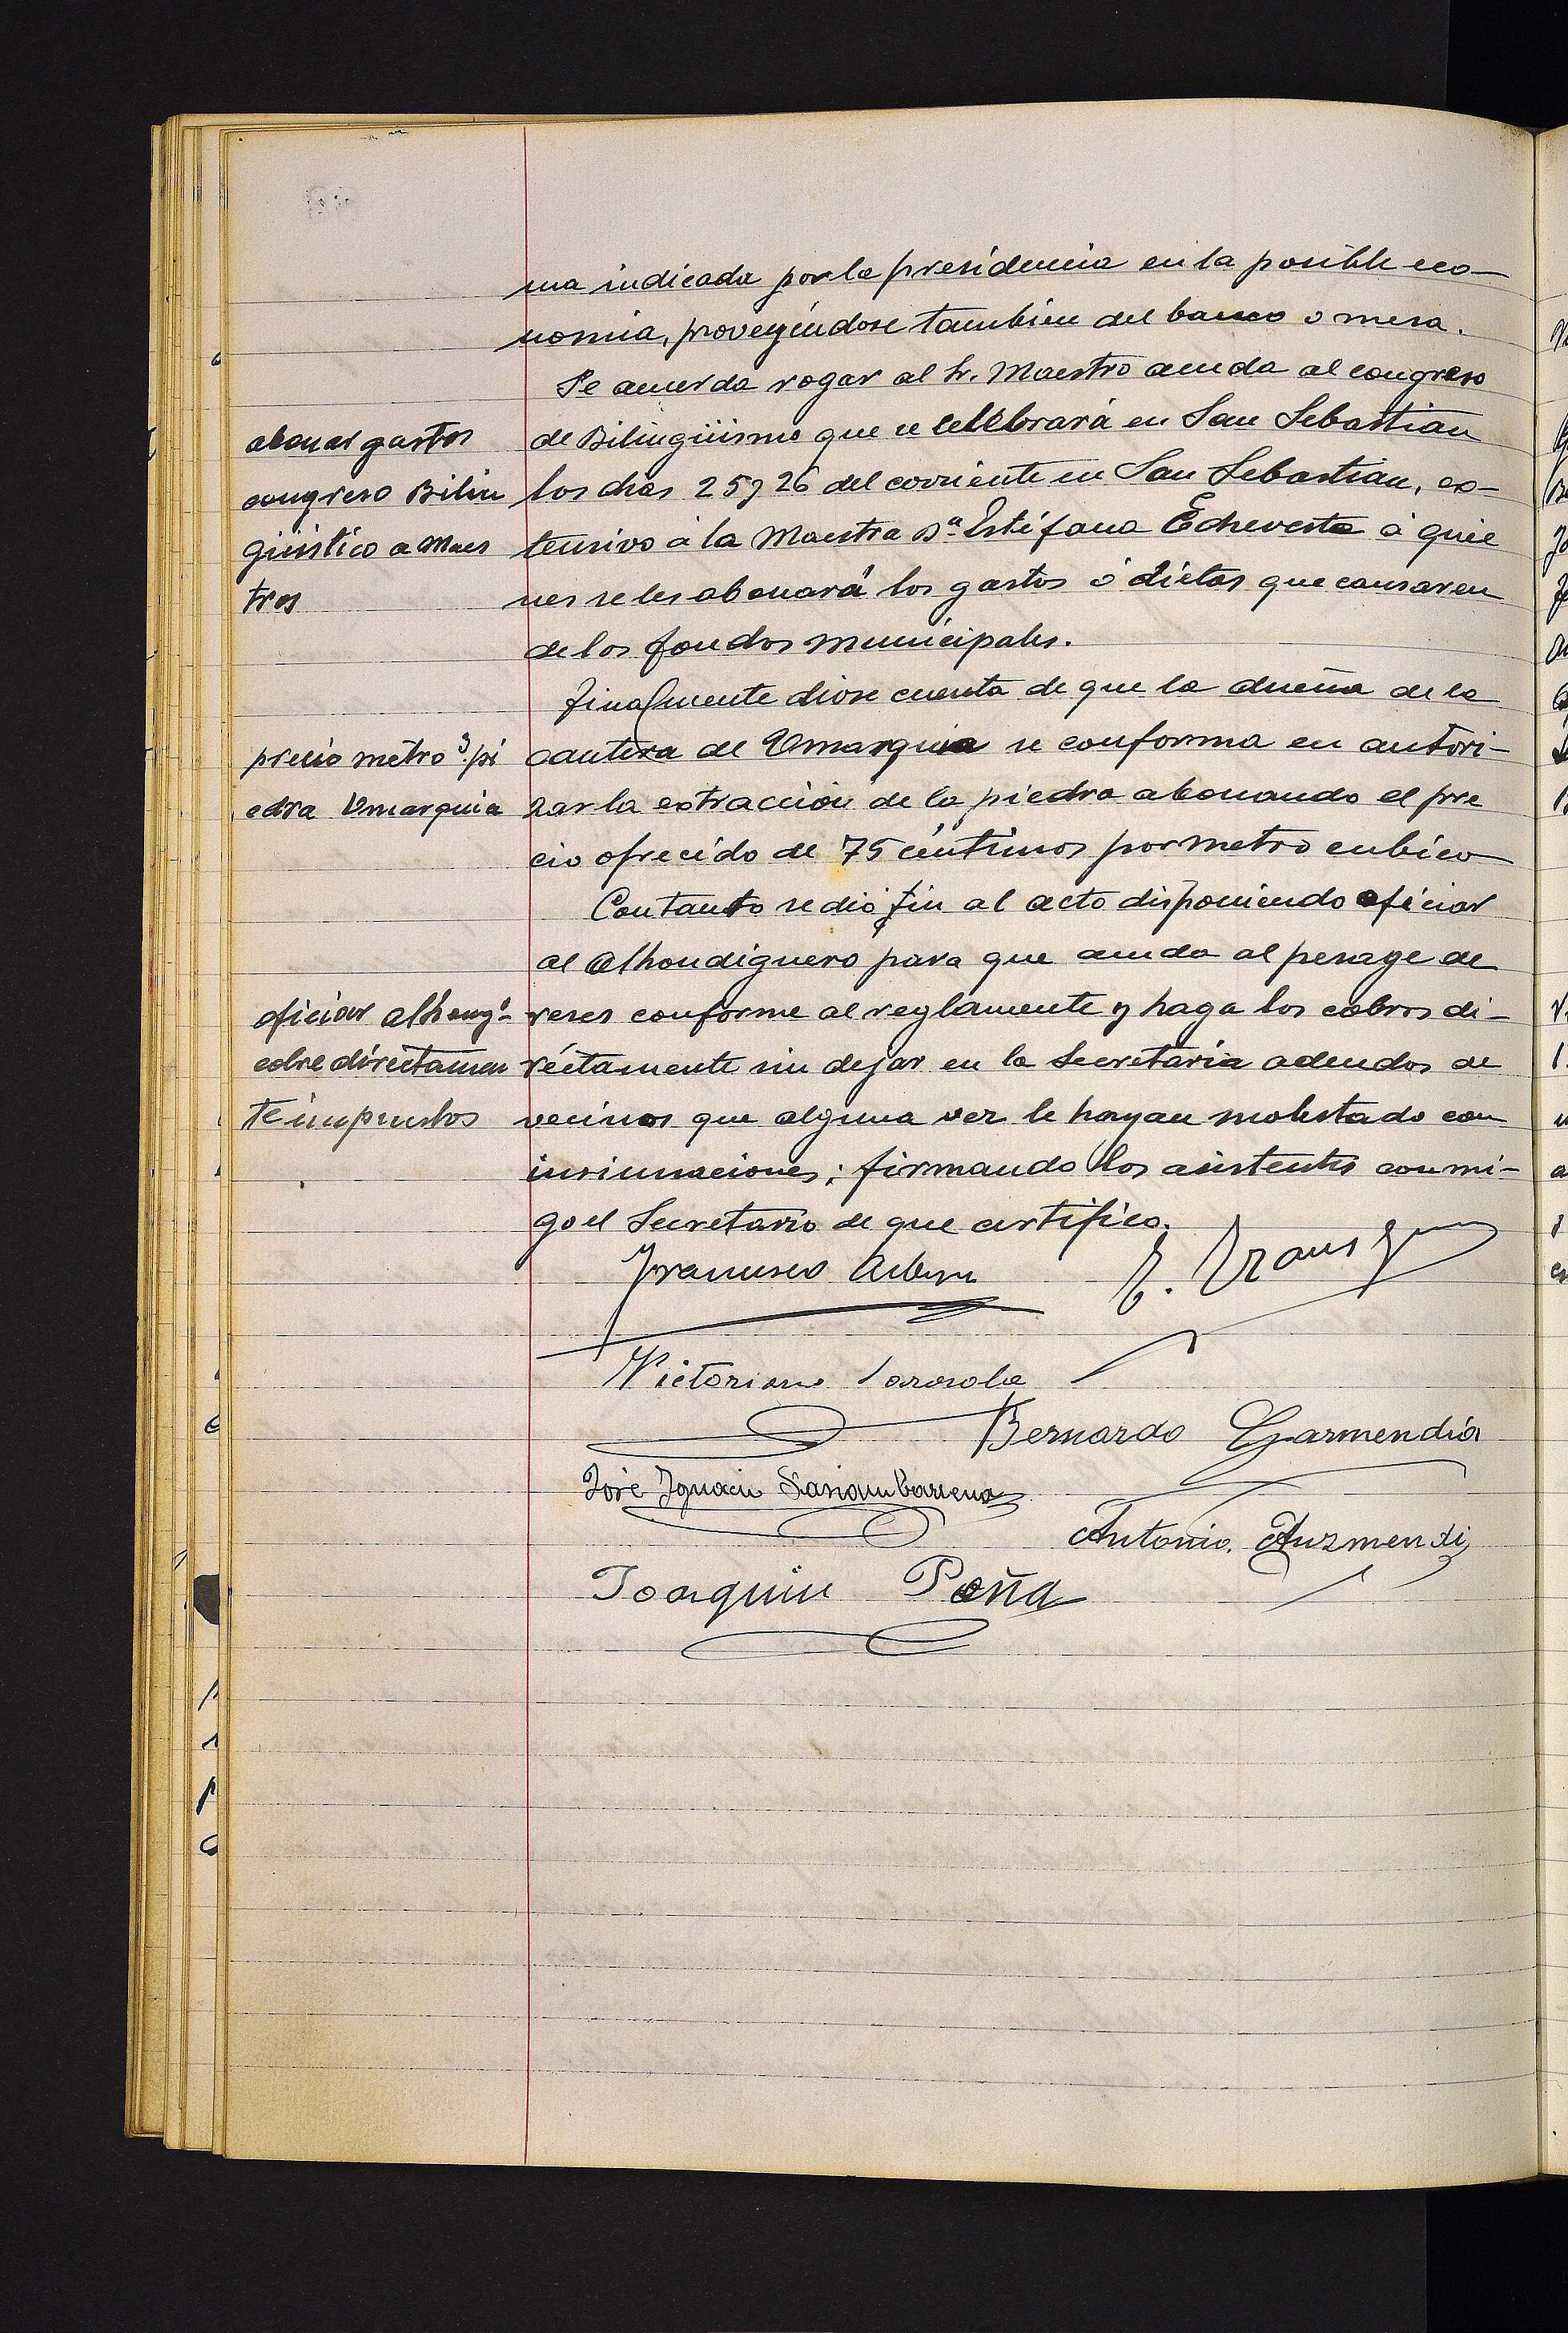 ma indicada por la presidencia en la posible eco-
nomia, proveyéndose tambien del banco o mesa.
Se acuerda rogar al Sr. Maestro acuda al congreso
de Bilingüismo que se celebrará en San Sebastian
los dias 25 y 26 del corriente en San Sebastian, ex-
tensivo á la Maestra Dª Estéfana Echeveste á quie
nes se les abonará los gastos ó dietas que causaren
de los fondos municipales.
Finalmente diose cuenta de que la dueña de la
cantera de Umarquia se conforma en autori-
zar la extracción de la piedra abonando el pre
cio ofrecido de 75 céntimos por metro cubico
Con tanto se dió fin al acto disponiendo oficiar
al Alhondiguero para que acuda al pesage de
reses conforme al reglamente y haga los cobros di-
réctamente sin dejar en la Secretaria adeudos de
vecinos que alguna vez le hayan molestado con
insinuaciones; firmando los asistentes conmi-
go el Secretario de que certifico.
abonar gastos
congreso Bilin
güistico a Maes
tros
precio metro 3. pi
edra Umarquia
oficiar alhongº
cobre diréctamen
te impuestos
Francisco
Victoriano Sarasola
Bernardo Garmendia
José Ignacio Sasiambarrena
Antonio Auzmendi
Joaquin Peña